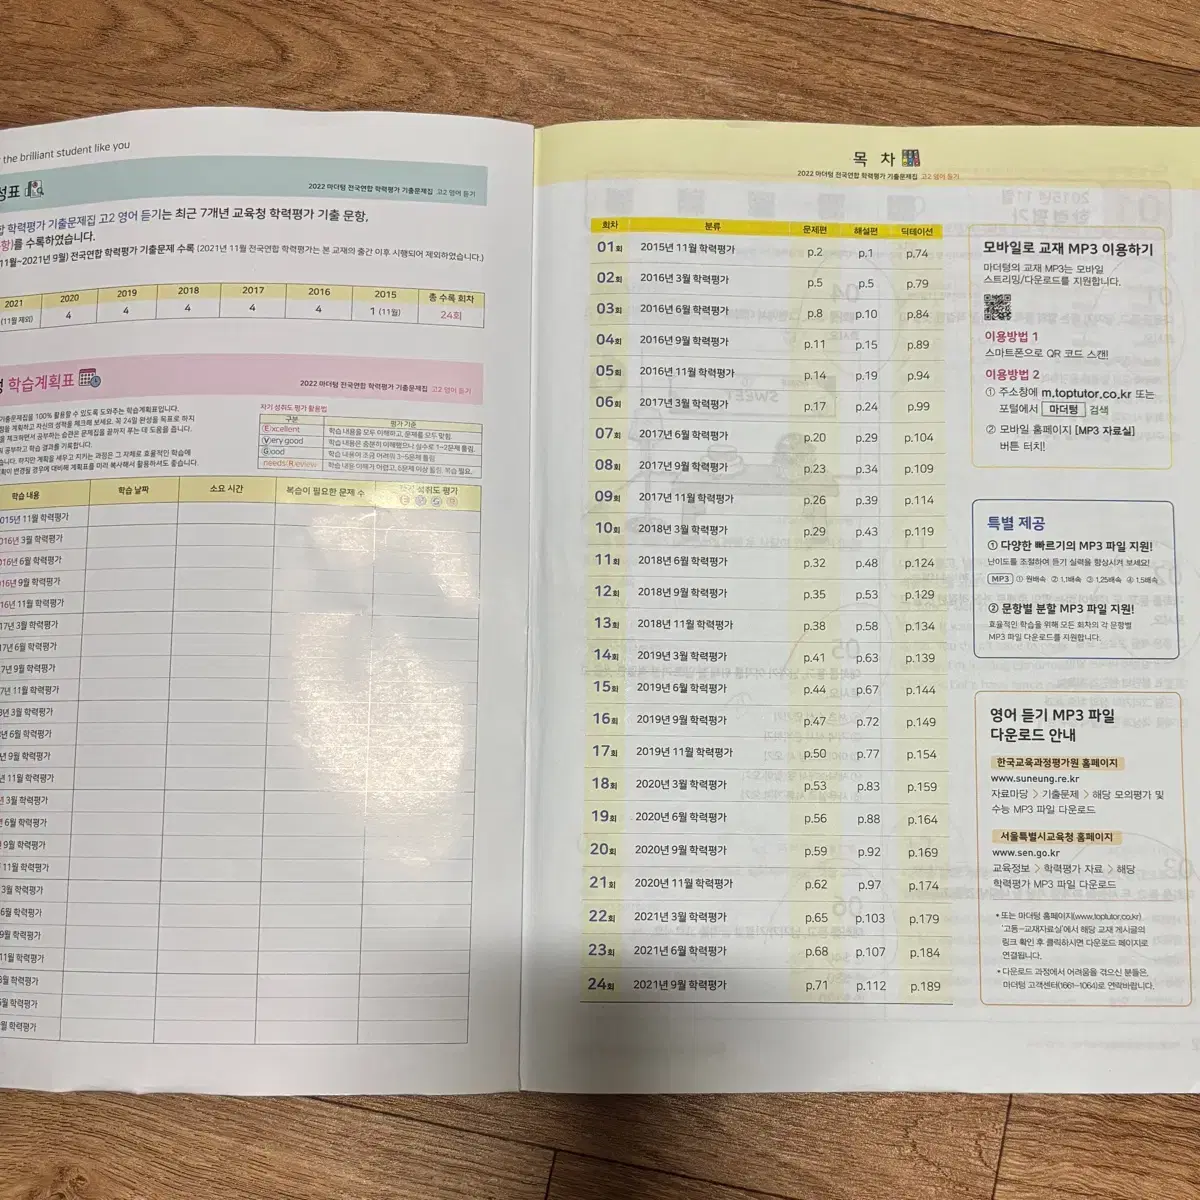 the brilliant student like you
성표
2022 마더텅 전국연합 학력평가 기출문제집 고2 영어 듣기
합 학력평가 기출문제집 고2 영어 듣기는 최근 7개년 교육청 학력평가 기출 문항,
항)를 수록하였습니다.
11월~2021년 9월) 전국연합 학력평가 기출문제 수록 (2021년 11월 전국연합 학력평가는 본 교재의 출간 이후 시행되어 제외하였습니다.)
2021 2020 2019 2018 2017 2016 2015 총 수록 회차
(11월 제외) 4 4 4 4 4 1 (11월) 24회
학습계획표
2022 마더텅 전국연합 학력평가 기출문제집 고2 영어 듣기
기출문제집을 100% 활용할 수 있도록 도와주는 학습계획표입니다.
계획하고 자신의 성적을 체크해 보세요. 꼭 24일 완성을 목표로 하지
체크하면서 공부하는 습관은 문제집을 끝까지 푸는 데 도움을 줍니다.
공부하고 학습 결과를 기록합니다.
하지만 계획을 세우고 지키는 과정은 그 자체로 효율적인 학습에
변경될 경우에 대비해 계획표를 미리 복사해서 활용하셔도 좋습니다.
자기 성취도 평가 활용법
구분 평가 기준
Excellent 학습 내용을 모두 이해하고, 문제를 모두 맞힘.
Very good 학습 내용은 충분히 이해했으나 실수로 1~2문제 틀림.
Good 학습 내용이 조금 어려워 3~5문제 틀림.
needs Review 학습 내용 이해가 어렵고, 6문제 이상 틀림. 복습 필요.
학습 내용 학습 날짜 소요 시간 복습이 필요한 문제 수 자기 성취도 평가
015년 11월 학력평가
016년 3월 학력평가
016년 6월 학력평가
016년 9월 학력평가
16년 11월 학력평가
17년 3월 학력평가
17년 6월 학력평가
7년 9월 학력평가
7년 11월 학력평가
8년 3월 학력평가
년 6월 학력평가
년 9월 학력평가
년 11월 학력평가
년 3월 학력평가
년 6월 학력평가
9월 학력평가
11월 학력평가
3월 학력평가
6월 학력평가
9월 학력평가
11월 학력평가
3월 학력평가
6월 학력평가
월 학력평가
목 차
2022 마더텅 전국연합 학력평가 기출문제집 고2 영어 듣기
회차 분류 문제편 해설편 딕테이션
01회 2015년 11월 학력평가 p.2 p.1 p.74
02회 2016년 3월 학력평가 p.5 p.5 p.79
03회 2016년 6월 학력평가 p.8 p.10 p.84
04회 2016년 9월 학력평가 p.11 p.15 p.89
05회 2016년 11월 학력평가 p.14 p.19 p.94
06회 2017년 3월 학력평가 p.17 p.24 p.99
07회 2017년 6월 학력평가 p.20 p.29 p.104
08회 2017년 9월 학력평가 p.23 p.34 p.109
09회 2017년 11월 학력평가 p.26 p.39 p.114
10회 2018년 3월 학력평가 p.29 p.43 p.119
11회 2018년 6월 학력평가 p.32 p.48 p.124
12회 2018년 9월 학력평가 p.35 p.53 p.129
13회 2018년 11월 학력평가 p.38 p.58 p.134
14회 2019년 3월 학력평가 p.41 p.63 p.139
15회 2019년 6월 학력평가 p.44 p.67 p.144
16회 2019년 9월 학력평가 p.47 p.72 p.149
17회 2019년 11월 학력평가 p.50 p.77 p.154
18회 2020년 3월 학력평가 p.53 p.83 p.159
19회 2020년 6월 학력평가 p.56 p.88 p.164
20회 2020년 9월 학력평가 p.59 p.92 p.169
21회 2020년 11월 학력평가 p.62 p.97 p.174
22회 2021년 3월 학력평가 p.65 p.103 p.179
23회 2021년 6월 학력평가 p.68 p.107 p.184
24회 2021년 9월 학력평가 p.71 p.112 p.189
모바일로 교재 MP3 이용하기
마더텅의 교재 MP3는 모바일
스트리밍/다운로드를 지원합니다.
이용방법 1
스마트폰으로 QR 코드 스캔!
이용방법 2
① 주소창에 m.toptutor.co.kr 또는
포털에서 마더텅 검색
② 모바일 홈페이지 [MP3 자료실]
버튼 터치!
특별 제공
① 다양한 빠르기의 MP3 파일 지원!
난이도를 조절하여 듣기 실력을 향상시켜 보세요!
MP3 ① 원배속 ② 1.1배속 ③ 1.25배속 ④ 1.5배속
② 문항별 분할 MP3 파일 지원!
효율적인 학습을 위해 모든 회차의 각 문항별
MP3 파일 다운로드를 지원합니다.
영어 듣기 MP3 파일
다운로드 안내
한국교육과정평가원 홈페이지
www.suneung.re.kr
자료마당 > 기출문제 > 해당 모의평가 및
수능 MP3 파일 다운로드
서울특별시교육청 홈페이지
www.sen.go.kr
교육정보 > 학력평가 자료 > 해당
학력평가 MP3 파일 다운로드
• 또는 마더텅 홈페이지(www.toptutor.co.kr)
'고등-교재자료실'에서 해당 교재 게시글의
링크 확인 후 클릭하시면 다운로드 페이지로
연결됩니다.
• 다운로드 과정에서 어려움을 겪으신 분들은,
마더텅 고객센터(1661-1064)로 연락바랍니다.